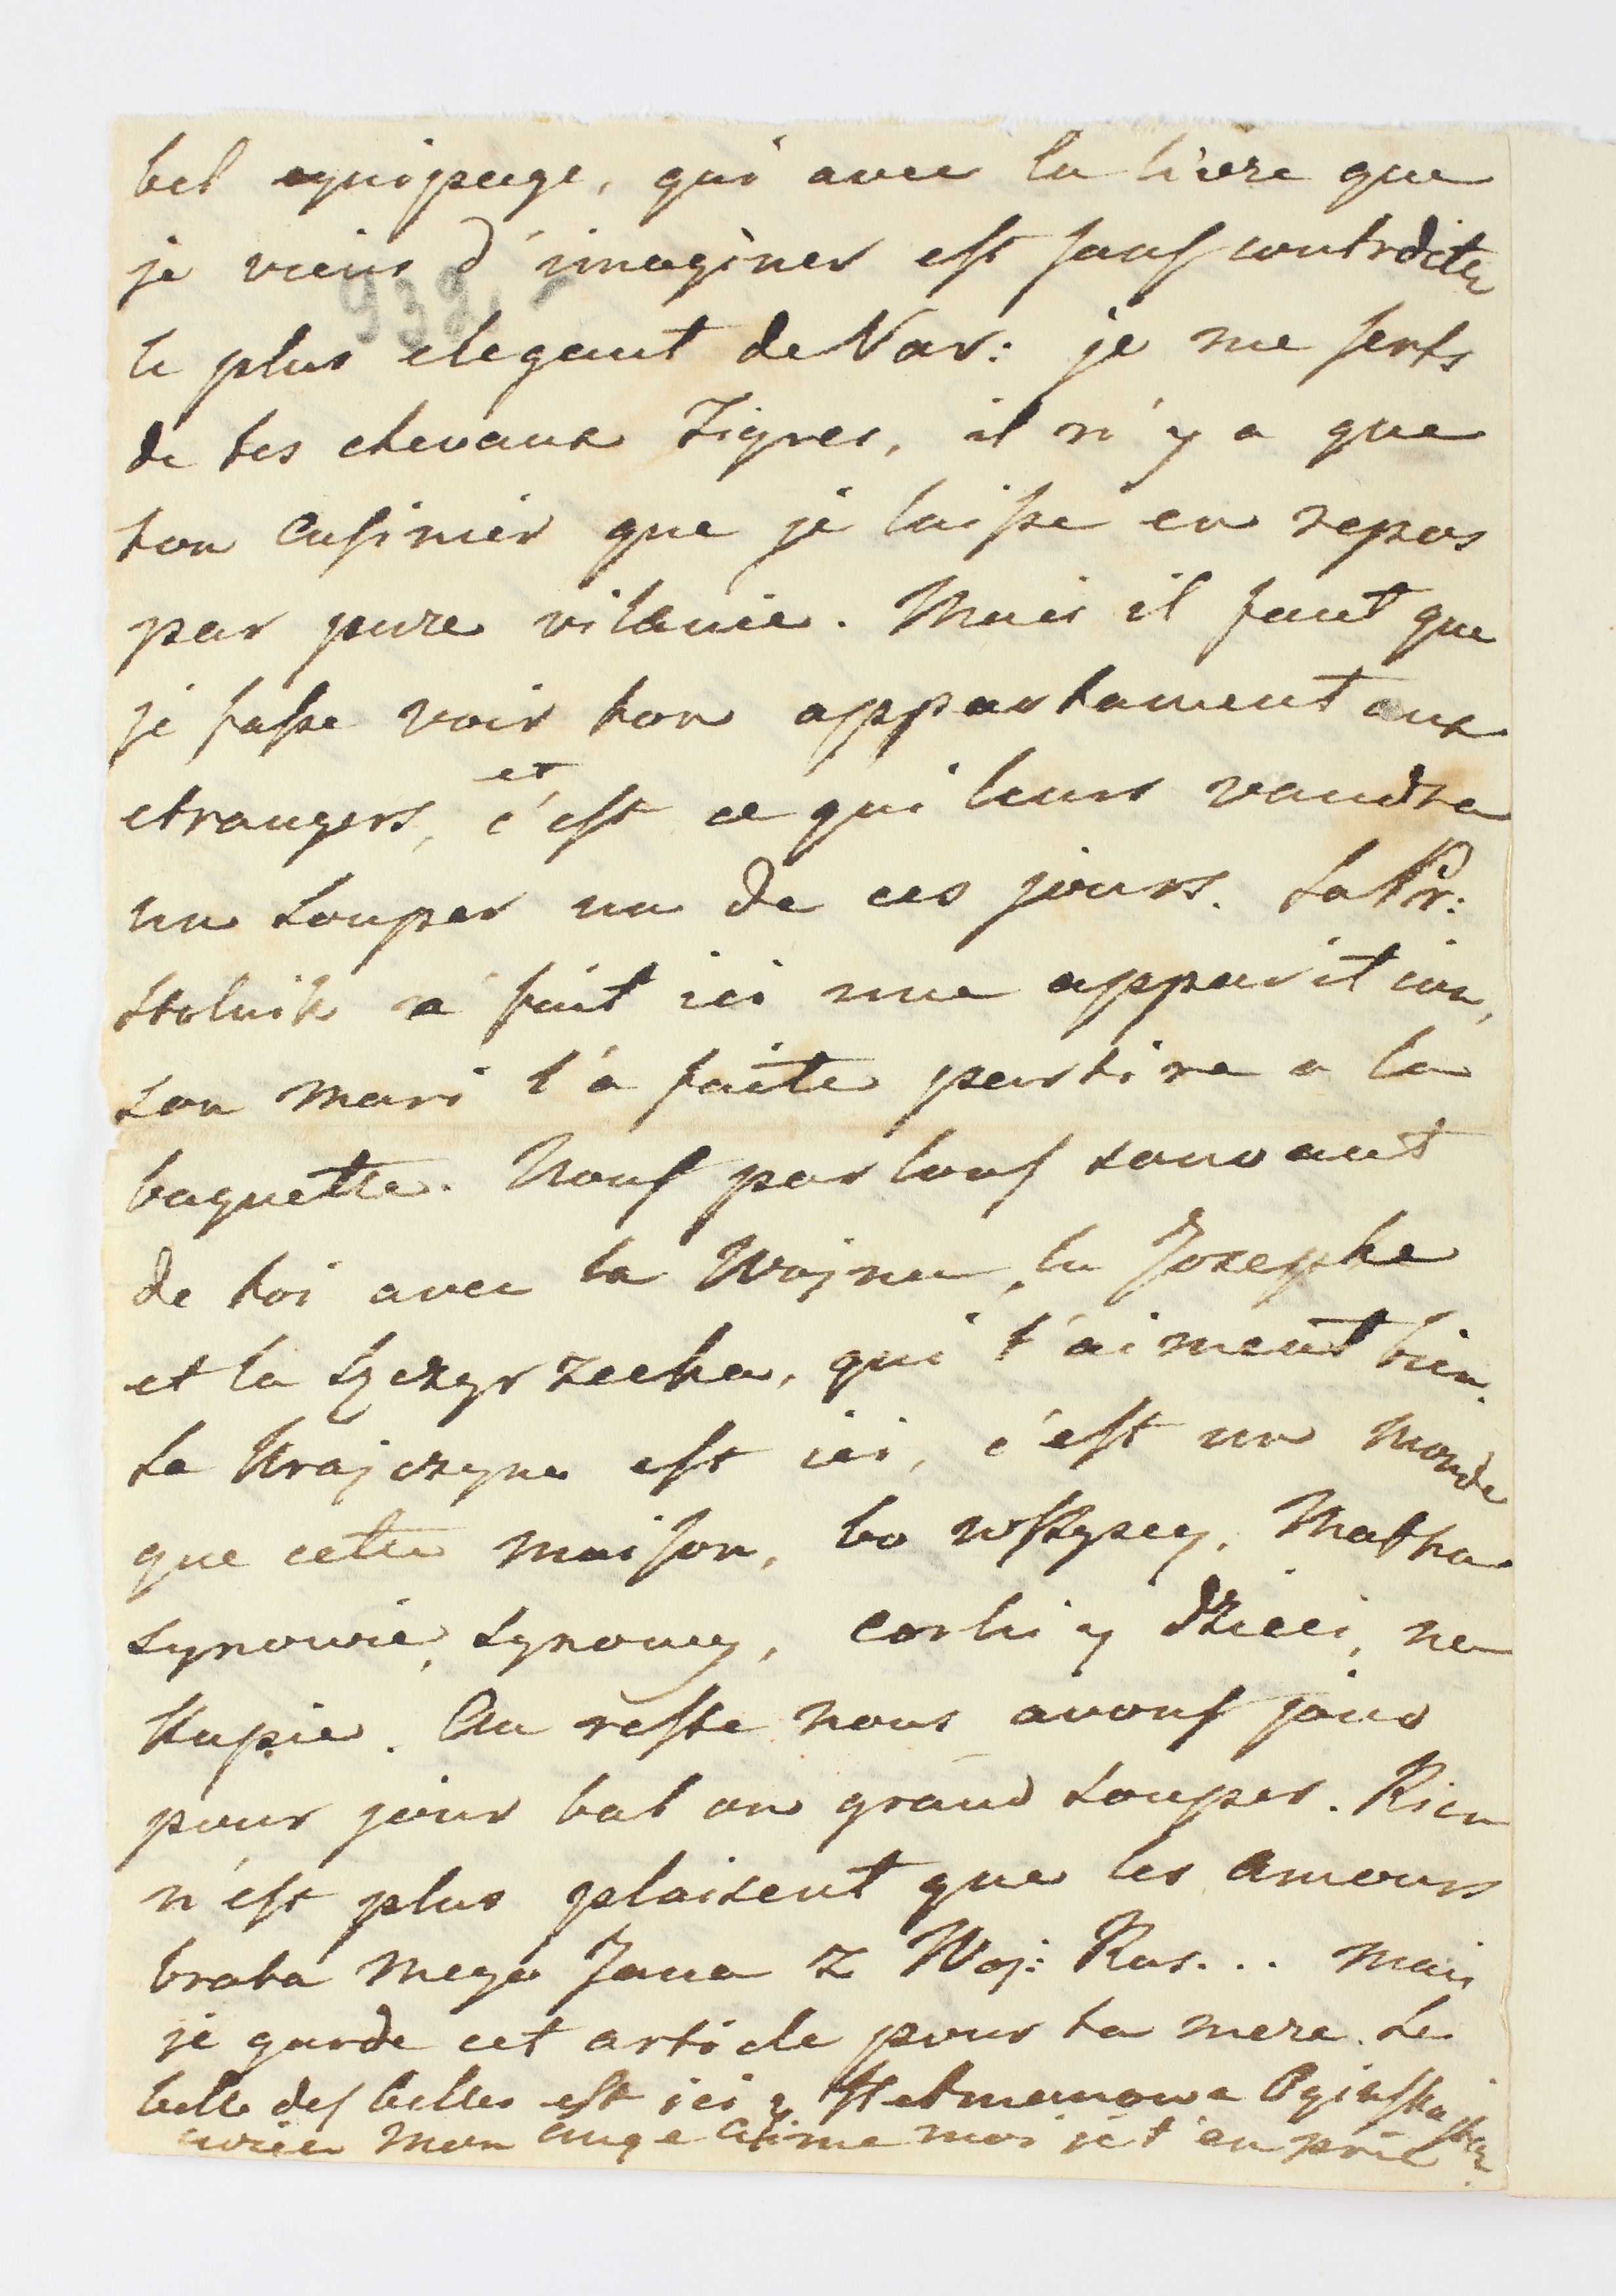 bel equipage, qui avec la livre que
je viens d'imaginer est sans contrdite
le plus elegant de Var: je me serts
de tes chevaux Tigres, il n'y a que
ton Cusinier que je laisse en repos
par pure vilanie. Mais il faut que
je fasse voir ton appartament aux
etrangers, et c'est ce qui leurs vaudra
un souper un de ces jours. La Pr:
Stolnik a fait ici une apparition,
son mari l'a faite partire a la
baguette. Nous parlons souvant
de toi avec la Wojna, la Josephe
et la, qui t'aiment bien.
La Krajczyna est ici, c'est un monde
que cette maison, bo wszyscy, Matka
synowie, synowy, corki y dzieci, na
kupie. Au reste nous avons jour
pour jour bal ou grand souper. Rien
n'est plus plaisent que les amours
brata mego Jana z Woj: Rus... mais
je garde cet article pour ta mere. La
belle des belles est ici y Hetmanowa Oginska
mon ange aime moi je t'en prie
932.